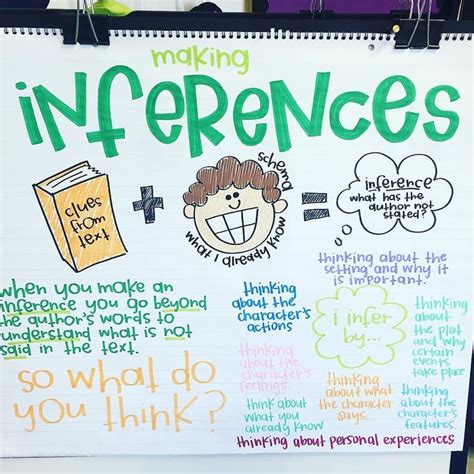 making
inferences
clues
from
text
+
schema
what I already know
=
inference
what has the
author not
stated?
when you make an
inference you go beyond
the author's words to
understand what is not
said in the text.
so what do
you think?
thinking about the
setting and why it
is important.
thinking
about the
character's
actions
i infer
by...
thinking
about
the plot
and why
certain
events
take place
thinking
about the
character's
feelings.
think about
what you
already know
thinking
about what
the character
says.
thinking
about the
character's
features.
thinking about personal experiences